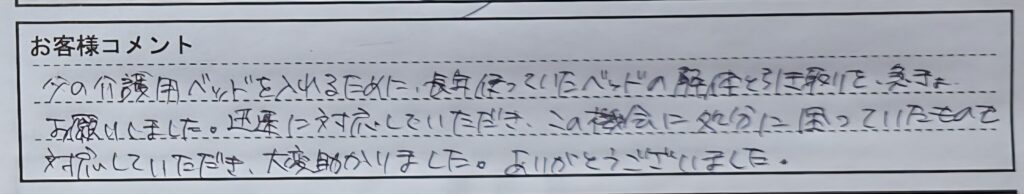 お客様コメント
父の介護用ベッドを入れるために、長年使っていたベッドの解体と引き取りを、急きょ
お願いしました。迅速に対応していただき、この機会に処分に困っていたもので
対応していただき、大変助かりました。ありがとうございました。